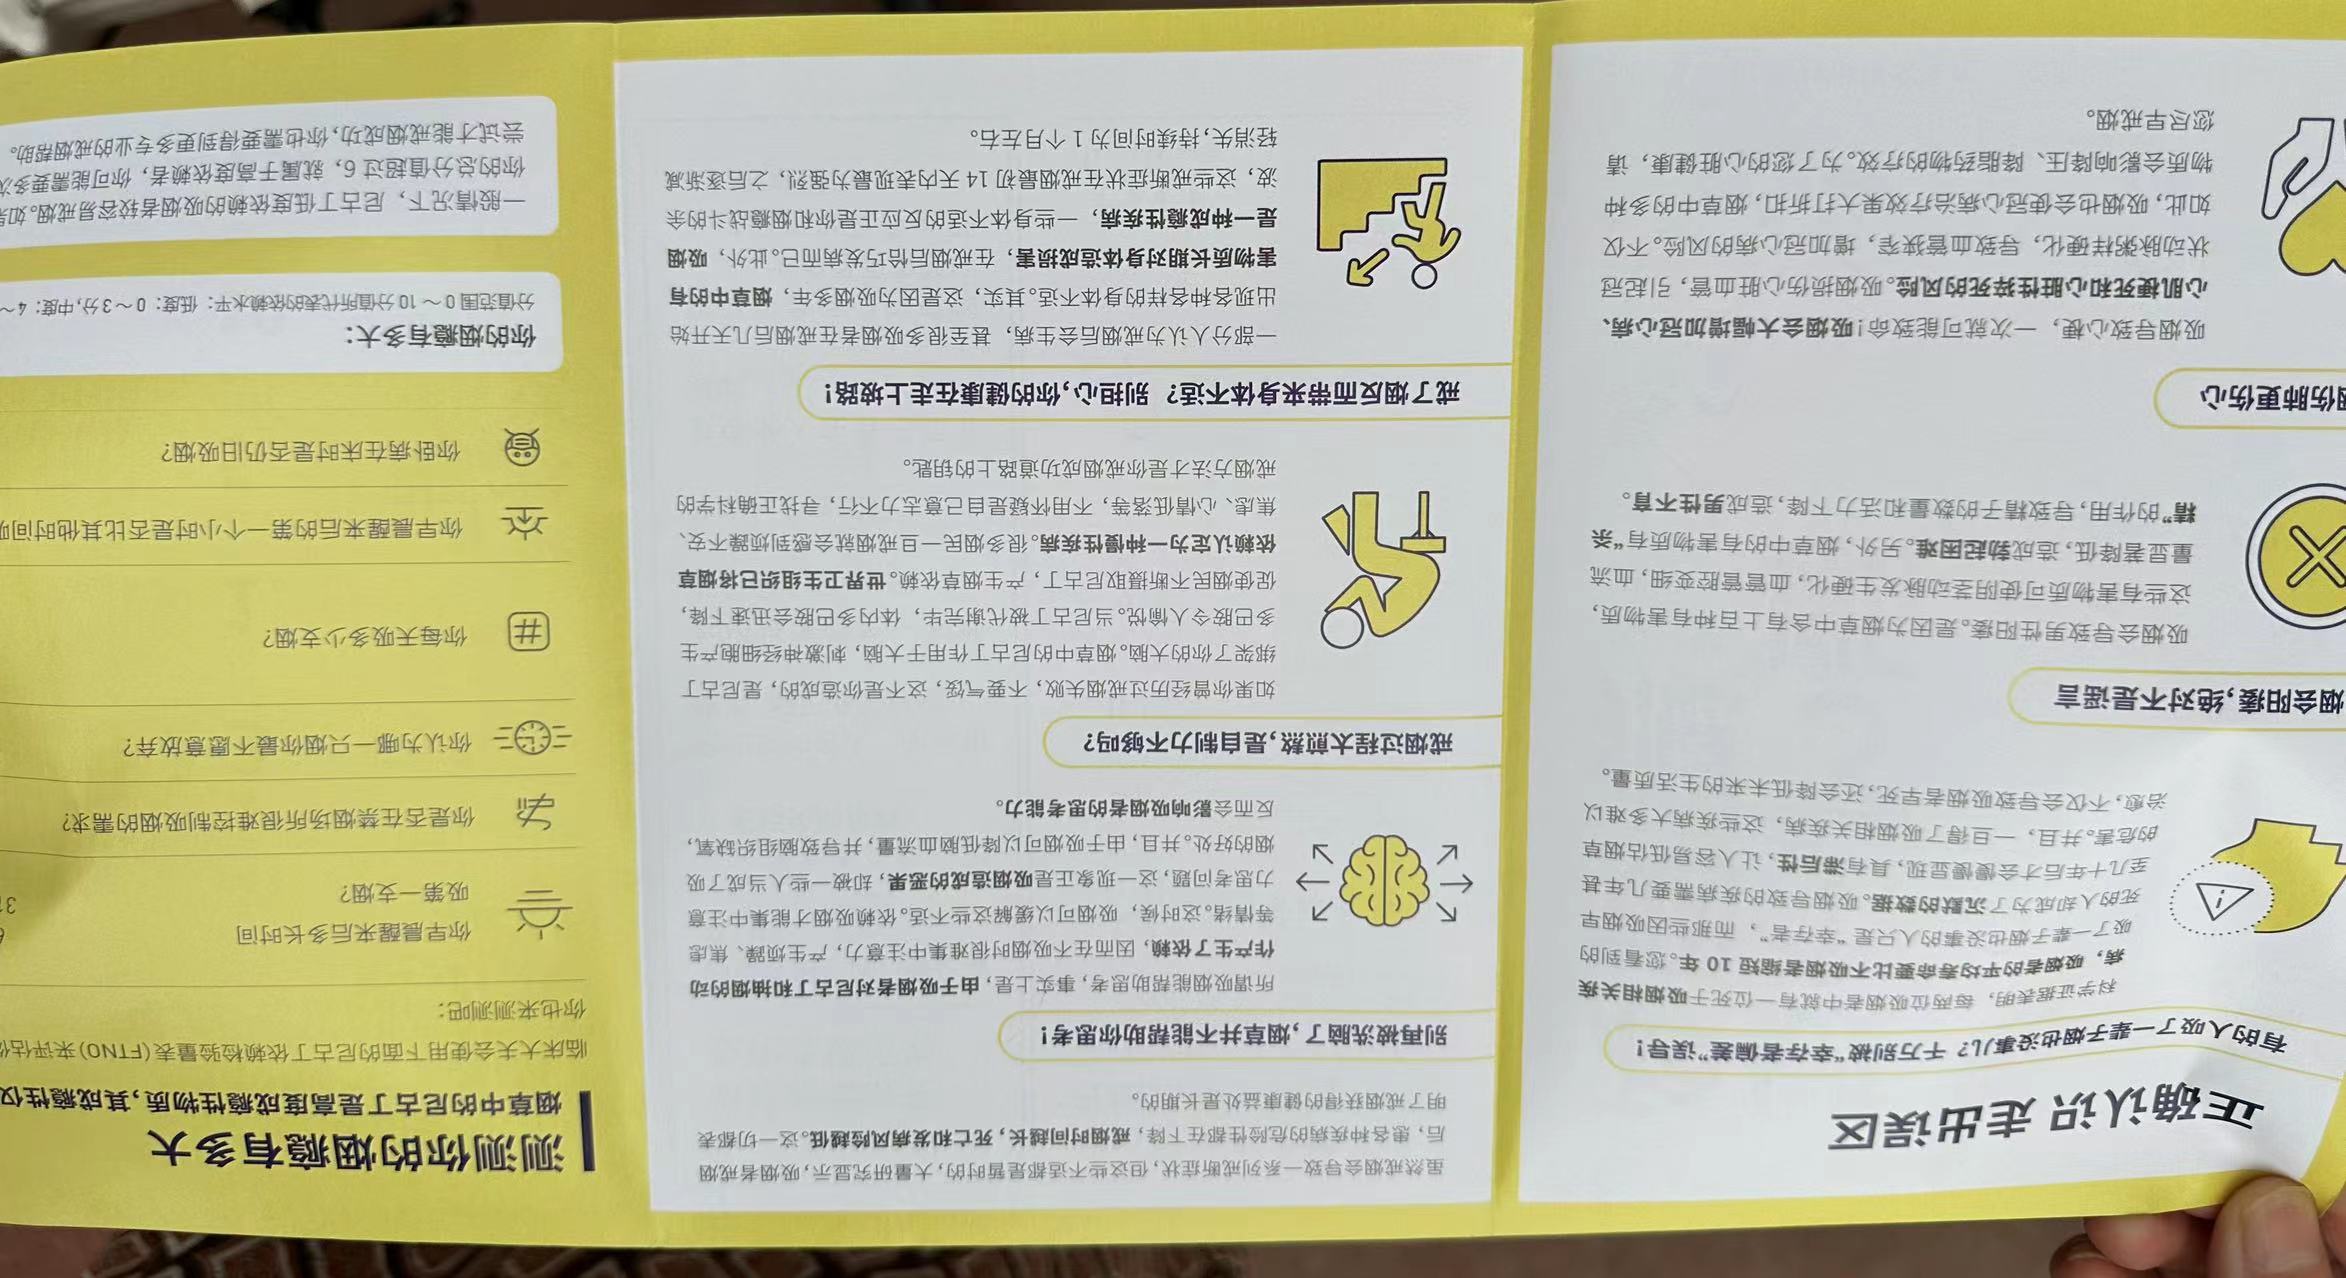 正确认识 走出误区
有的人吸了一辈子烟也没事儿？千万别被“幸存者偏差”误导！
科学证据表明，每两位吸烟者中就有一位死于吸烟相关疾
病，吸烟者的平均寿命要比不吸烟者缩短 10 年。您看到的
吸了一辈子烟也没事的人只是“幸存者”，而那些因吸烟早
死的人却成为了沉默的数据。吸烟导致的疾病需要几年甚
至几十年后才会慢慢显现，具有滞后性，让人容易低估烟草
的危害。并且，一旦得了吸烟相关疾病，这些疾病大多难以
治愈，不仅会导致吸烟者早死，还会降低未来的生活质量。
烟会阳痿，绝对不是谣言
吸烟会导致男性阳痿。是因为烟草中含有上百种有害物质，
这些有害物质可使阴茎动脉发生硬化，血管管腔变细，血流
量显著降低，造成勃起困难。另外，烟草中的有害物质有“杀
精”的作用，导致精子的数量和活力下降，造成男性不育。
烟伤肺更伤心
吸烟导致心梗，一次就可能致命！吸烟会大幅增加冠心病、
心肌梗死和心脏性猝死的风险。吸烟损伤心脏血管，引起冠
状动脉粥样硬化，导致血管狭窄，增加冠心病的风险。不仅
如此，吸烟也会使冠心病治疗效果大打折扣，烟草中的多种
物质会影响降压、降脂药物的疗效。为了您的心脏健康，请
您尽早戒烟。
虽然戒烟会导致一系列戒断症状，但这些不适都是暂时的，大量研究显示，吸烟者戒烟
后，患各种疾病的危险性都在下降，戒烟时间越长，死亡和发病风险越低。这一切都表
明了戒烟获得的健康益处是长期的。
别再被洗脑了，烟草并不能帮助你思考！
所谓吸烟能帮助思考，事实上是，由于吸烟者对尼古丁和抽烟的动
作产生了依赖，因而在不吸烟时很难集中注意力，产生烦躁、焦虑
等情绪。这时候，吸烟可以缓解这些不适。依赖吸烟才能集中注意
力思考问题，这一现象正是吸烟造成的恶果，却被一些人当成了吸
烟的好处。并且，由于吸烟可以降低脑血流量，并导致脑组织缺氧，
反而会影响吸烟者的思考能力。
戒烟过程太煎熬，是自制力不够吗？
如果你曾经历过戒烟失败，不要气馁，这不是你造成的，是尼古丁
绑架了你的大脑。烟草中的尼古丁作用于大脑，刺激神经细胞产生
多巴胺令人愉悦。当尼古丁被代谢完毕，体内多巴胺会迅速下降，
促使烟民不断摄取尼古丁，产生烟草依赖。世界卫生组织已将烟草
依赖认定为一种慢性疾病。很多烟民一旦戒烟就会感到烦躁不安、
焦虑、心情低落等，不用怀疑是自己意志力不行，寻找正确科学的
戒烟方法才是你戒烟成功道路上的钥匙。
戒了烟反而带来身体不适？别担心，你的健康在走上坡路！
一部分人认为戒烟后会生病，甚至很多吸烟者在戒烟后几天开始
出现各种各样的身体不适。其实，这是因为吸烟多年，烟草中的有
害物质长期对身体造成损害，在戒烟后恰巧发病而已。此外，吸烟
是一种成瘾性疾病，一些身体不适的反应正是你和烟瘾战斗的余
波，这些戒断症状在戒烟最初 14 天内表现最为强烈，之后逐渐减
轻消失，持续时间为 1 个月左右。
测测你的烟瘾有多大
烟草中的尼古丁是高度成瘾性物质，其成瘾性仅
临床大夫会使用下面的尼古丁依赖检验量表(FTND)来评估你
你也来测测吧：
你早晨醒来后多长时间
吸第一支烟？
你是否在禁烟场所很难控制吸烟的需求？
你认为哪一只烟你最不愿意放弃？
你每天吸多少支烟？
你早晨醒来后的第一个小时是否比其他时间吸
你卧病在床时是否仍旧吸烟？
你的烟瘾有多大：
分值范围 0～10 分值所代表的依赖水平：低度：0～3分，中度：4～
一般情况下，尼古丁低度依赖的吸烟者较容易戒烟。如果
你的总分值超过 6，就属于高度依赖者，你可能需要多次
尝试才能戒烟成功，你也需要得到更多专业的戒烟帮助。